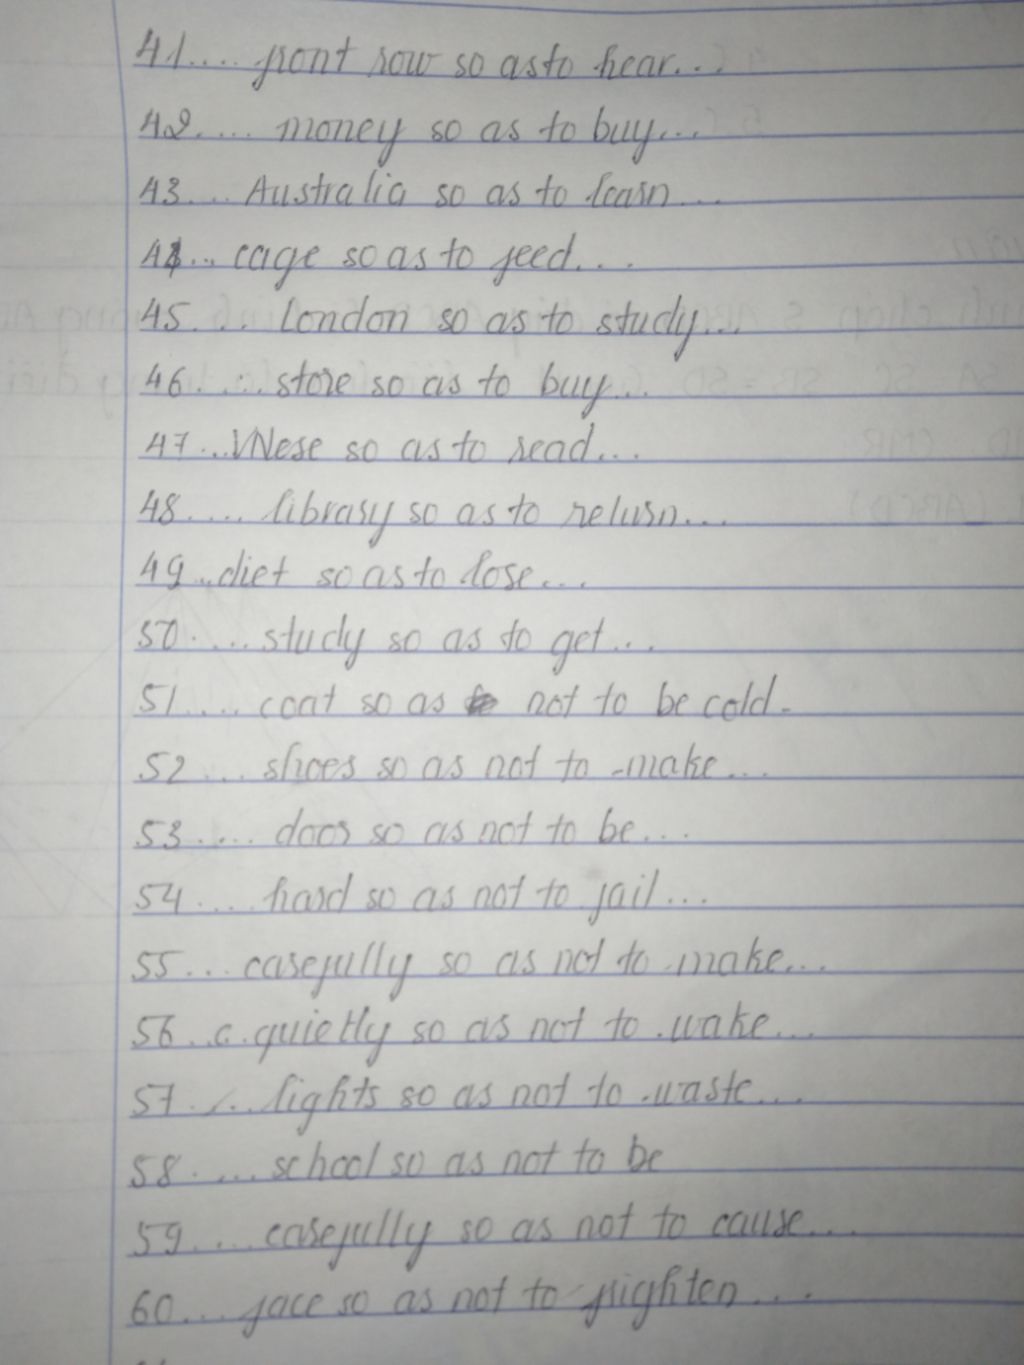 41.... front row so as to hear...
42.... money so as to buy...
43.... Australia so as to learn...
44... cage so as to feed...
45.... London so as to study...
46.... store so as to buy...
47... so as to read...
48.... library so as to return...
49...diet so as to lose...
50.... study so as to get...
51.... coat so as not to be cold.
52.... shoes so as not to make...
53.... doos so as not to be...
54.... hard so as not to fail...
55... carefully so as not to make...
56... quietly so as not to wake...
57.... lights so as not to waste...
58.... school so as not to be
59.... carefully so as not to cause...
60... face so as not to frighten...